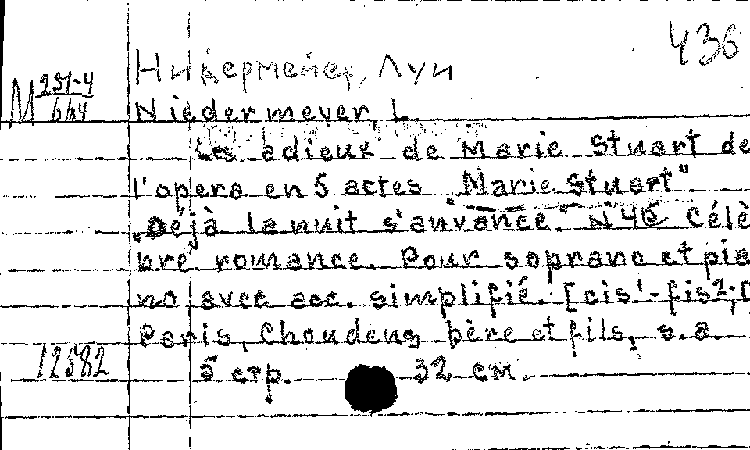 436
Нидермейер, Луи
М 251-4/664
Niedermeyer, L.
Les adieux de Marie Stuart de
l'opera en 5 actes "Marie Stuart".
"Déjà la nuit s'anvance." N 4C Célè-
bre romance. Pour soprano et pia
no avec acc. simplifié. [cis¹-fis²;
Paris, Choudens père et fils, s.a.
12582
5 стр. 32 см.